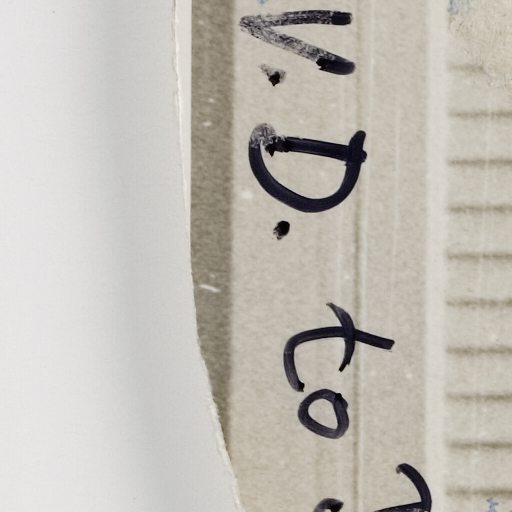 V.D. to